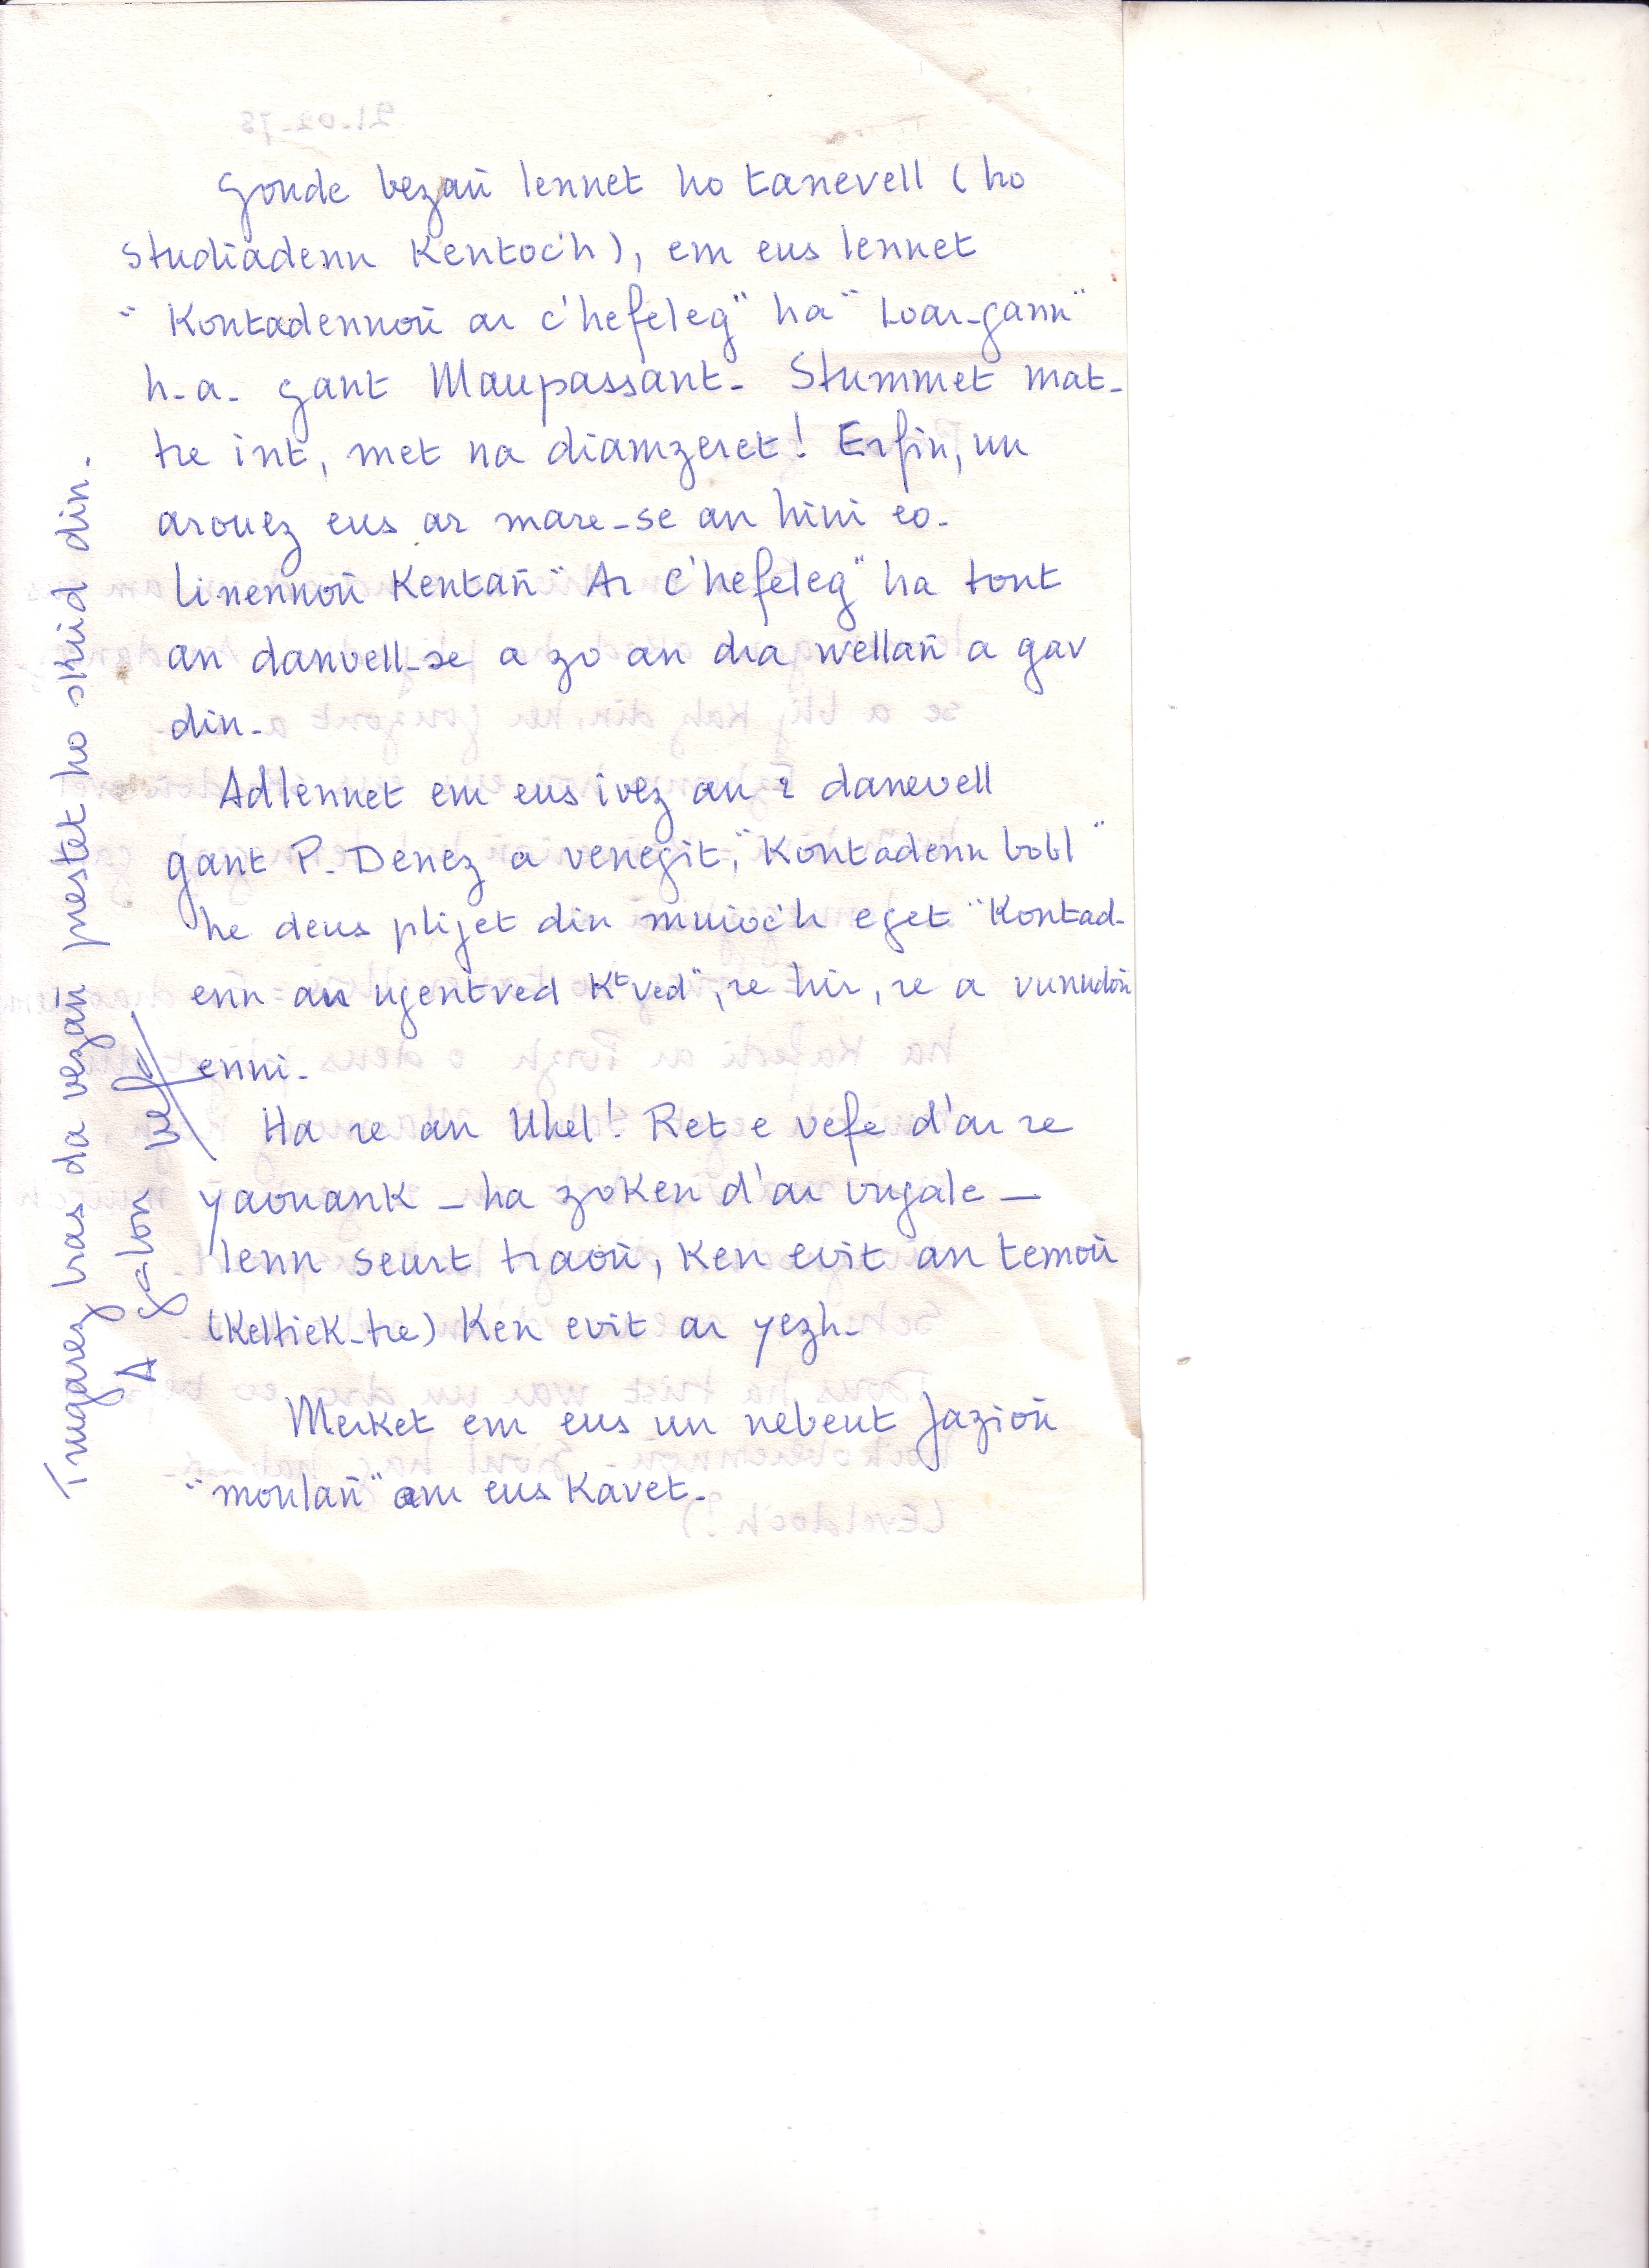 Goude bezañ lennet ho tanevell (ho
studiadenn kentoc'h), em eus lennet
"Kontadennoù ar c'hefeleg" ha "Loar-gann"
h.a. gant Maupassant. Stummet mat-
tre int, met na diamzeret! Erfin, un
arouez eus ar mare-se an hini eo.
Linennoù kentañ "Ar C'hefeleg" ha tout
an danvell-se a zo an dra wellañ a gav
din.
Adlennet em eus ivez an 2 danevell
gant P. Denez a venegit, "Kontadenn bobl"
he deus plijet din muioc'h eget "Kontad-
enn an ugentved Ktved", re hir, re a vunudoù
enni.
Ha re an Uhel! Ret e vefe d'ar re
yaouank – ha zoken d'ar vugale –
lenn seurt traoù, ken evit an temoù
(keltiek-tre) ken evit ar yezh.
Merket em eus un nebeut faziou
"moulañ" am eus kavet.
Trugarez vras da vezañ prestet ho skrid din.
A g-lon